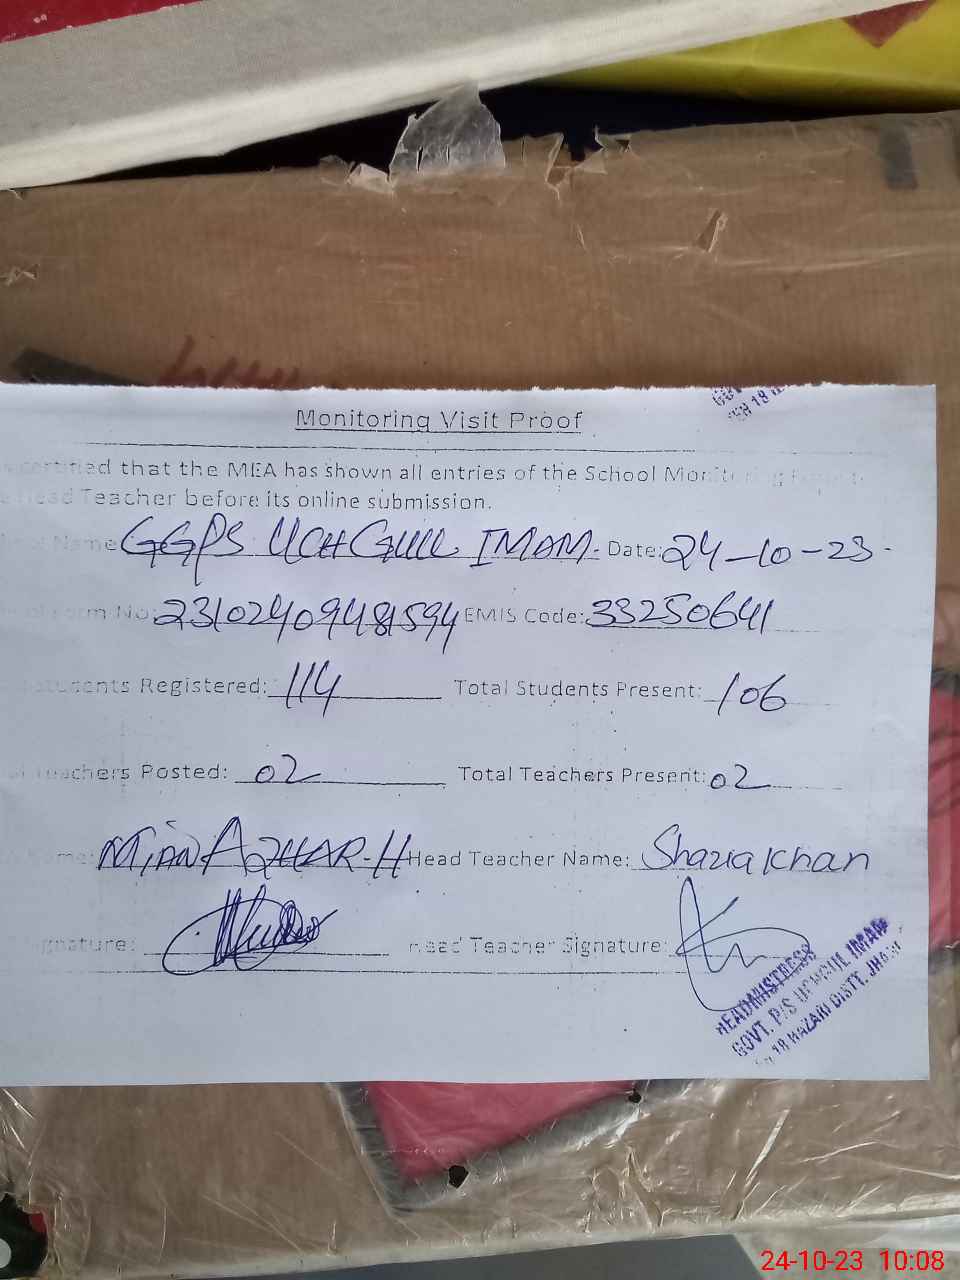 Monitoring Visit Proof
certified that the MEA has shown all entries of the School Monitoring
Head Teacher before its online submission.
Name GGPS UCH GULL IMAM. Date: 24-10-23.
Form No: 23102409481594 EMIS Code: 33250641
Students Registered: 114 Total Students Present: 106
Teachers Posted: 02 Total Teachers Present: 02
Name: MIAN AZHAR-H Head Teacher Name: Shazia Khan
Signature: Head Teacher Signature:
HEADMISTRESS
GOVT. P/S UCH GUL IMAM
18 HAZARI DISTT. JHANG
24-10-23 10:08